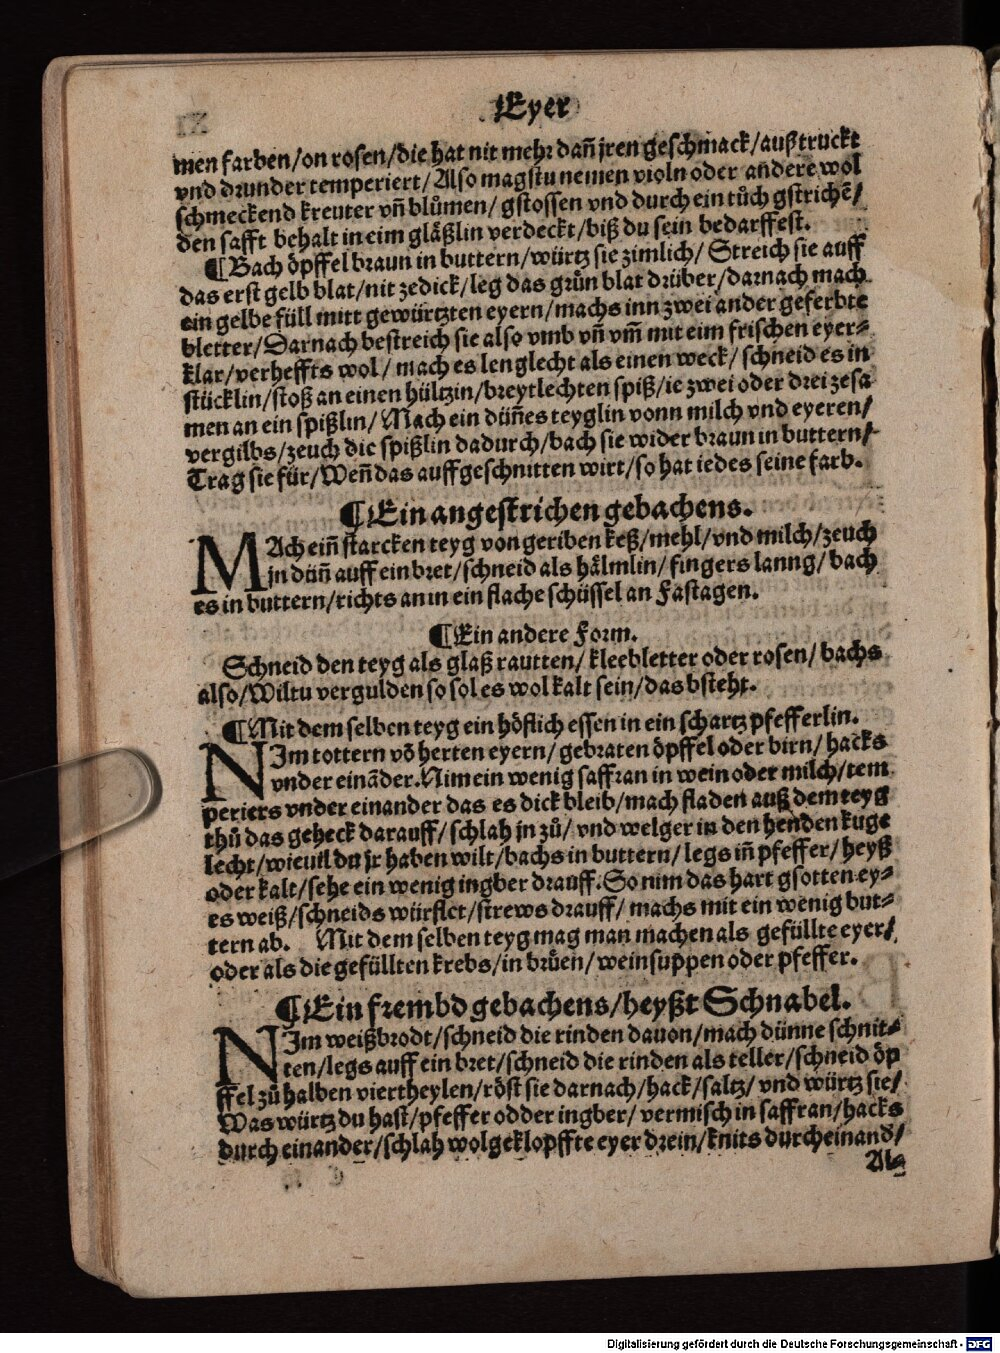 Eyer
men farben/on rosen/die hat nit mehr dañ jren geschmack/außtruckt
vnd drunder temperiert/Also magstu nemen violn oder andere wol
schmeckend kreuter vñ blůmen/gstossen vnd durch ein tůch gstrichẽ/
den safft behalt in eim gläßlin verdeckt/biß du sein bedarffest.
¶Bach öpffel braun in buttern/würtz sie zimlich/Streich sie auff
das erst gelb blat/nit ze dick/leg das grün blat drüber/darnach mach
ein gelbe füll mitt gewürtzten eyern/machs inn zwei ander geferbte
bletter/Darnach bestreich sie also vmb vñ vm̃ mit eim frischen eyer⸗
klar/verheffts wol/mach es lenglecht als einen weck/schneid es in
stücklin/stoß an einen hültzin/breytlechten spiß/ie zwei oder drei zesa
men an ein spißlin/Mach ein düñes teyglin vonn milch vnd eyeren/
vergilbs/zeuch die spißlin dadurch/bach sie wider braun in buttern/
Trag sie für/Weñ das auffgeschnitten wirt/so hat iedes seine farb.
¶Ein angestrichen gebachens.
MAch eiñ starcken teyg von geriben keß/mehl/vnd milch/zeuch
jn düñ auff ein bret/schneid als hälmlin/fingers lanng/bach
es in buttern/richts an in ein flache schüssel an Fastagen.
¶Ein andere Form.
Schneid den teyg als glaß rautten/kleebletter oder rosen/bachs
also/Wiltu vergulden so sol es wol kalt sein/das bsteht.
¶Mit dem selben teyg ein höflich essen in ein schartz pfefferlin.
NIm tottern võ herten eyern/gebraten öpffel oder birn/hacks
vnder einãder.Nim ein wenig saffran in wein oder milch/tem
periers vnder einander das es dick bleib/mach fladen auß dem teyg
thů das geheck darauff/schlah jn zů/vnd welger in den henden kuge
lecht/wieuil du jr haben wilt/bachs in buttern/legs iñ pfeffer/heyß
oder kalt/sehe ein wenig ingber drauff.So nim das hart gsotten ey⸗
es weiß/schneids würflet/strews drauff/machs mit ein wenig but⸗
tern ab. Mit dem selben teyg mag man machen als gefüllte eyer/
oder als die gefüllten krebs/in brůen/weinsuppen oder pfeffer.
¶Ein frembd gebachens/heyßt Schnabel.
NIm weißbrodt/schneid die rinden dauon/mach dünne schnit⸗
ten/legs auff ein bret/schneid die rinden als teller/schneid öp
ffel zů halben viertheylen/röst sie darnach/hack/saltz/vnd würtz sie/
Was würtz du hast/pfeffer odder ingber/vermisch in saffran/hacks
durch einander/schlah wolgeklopffte eyer drein/knits durcheinand/
Al⸗
Digitalisierung gefördert durch die Deutsche Forschungsgemeinschaft - DFG